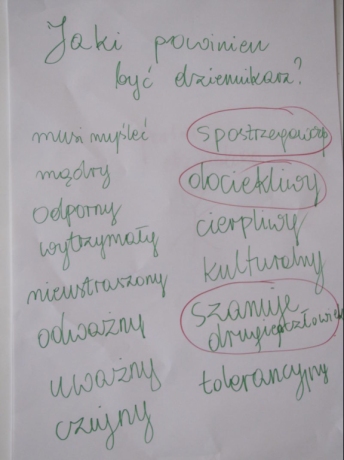 Jaki powinien
być dziennikarz?
musi myśleć
mądry
odporny
wytrzymały
nieustraszony
odważny
uważny
czujny
spostrzegawczy
dociekliwy
cierpliwy
kulturalny
szanuje
drugiego człowieka
tolerancyjny